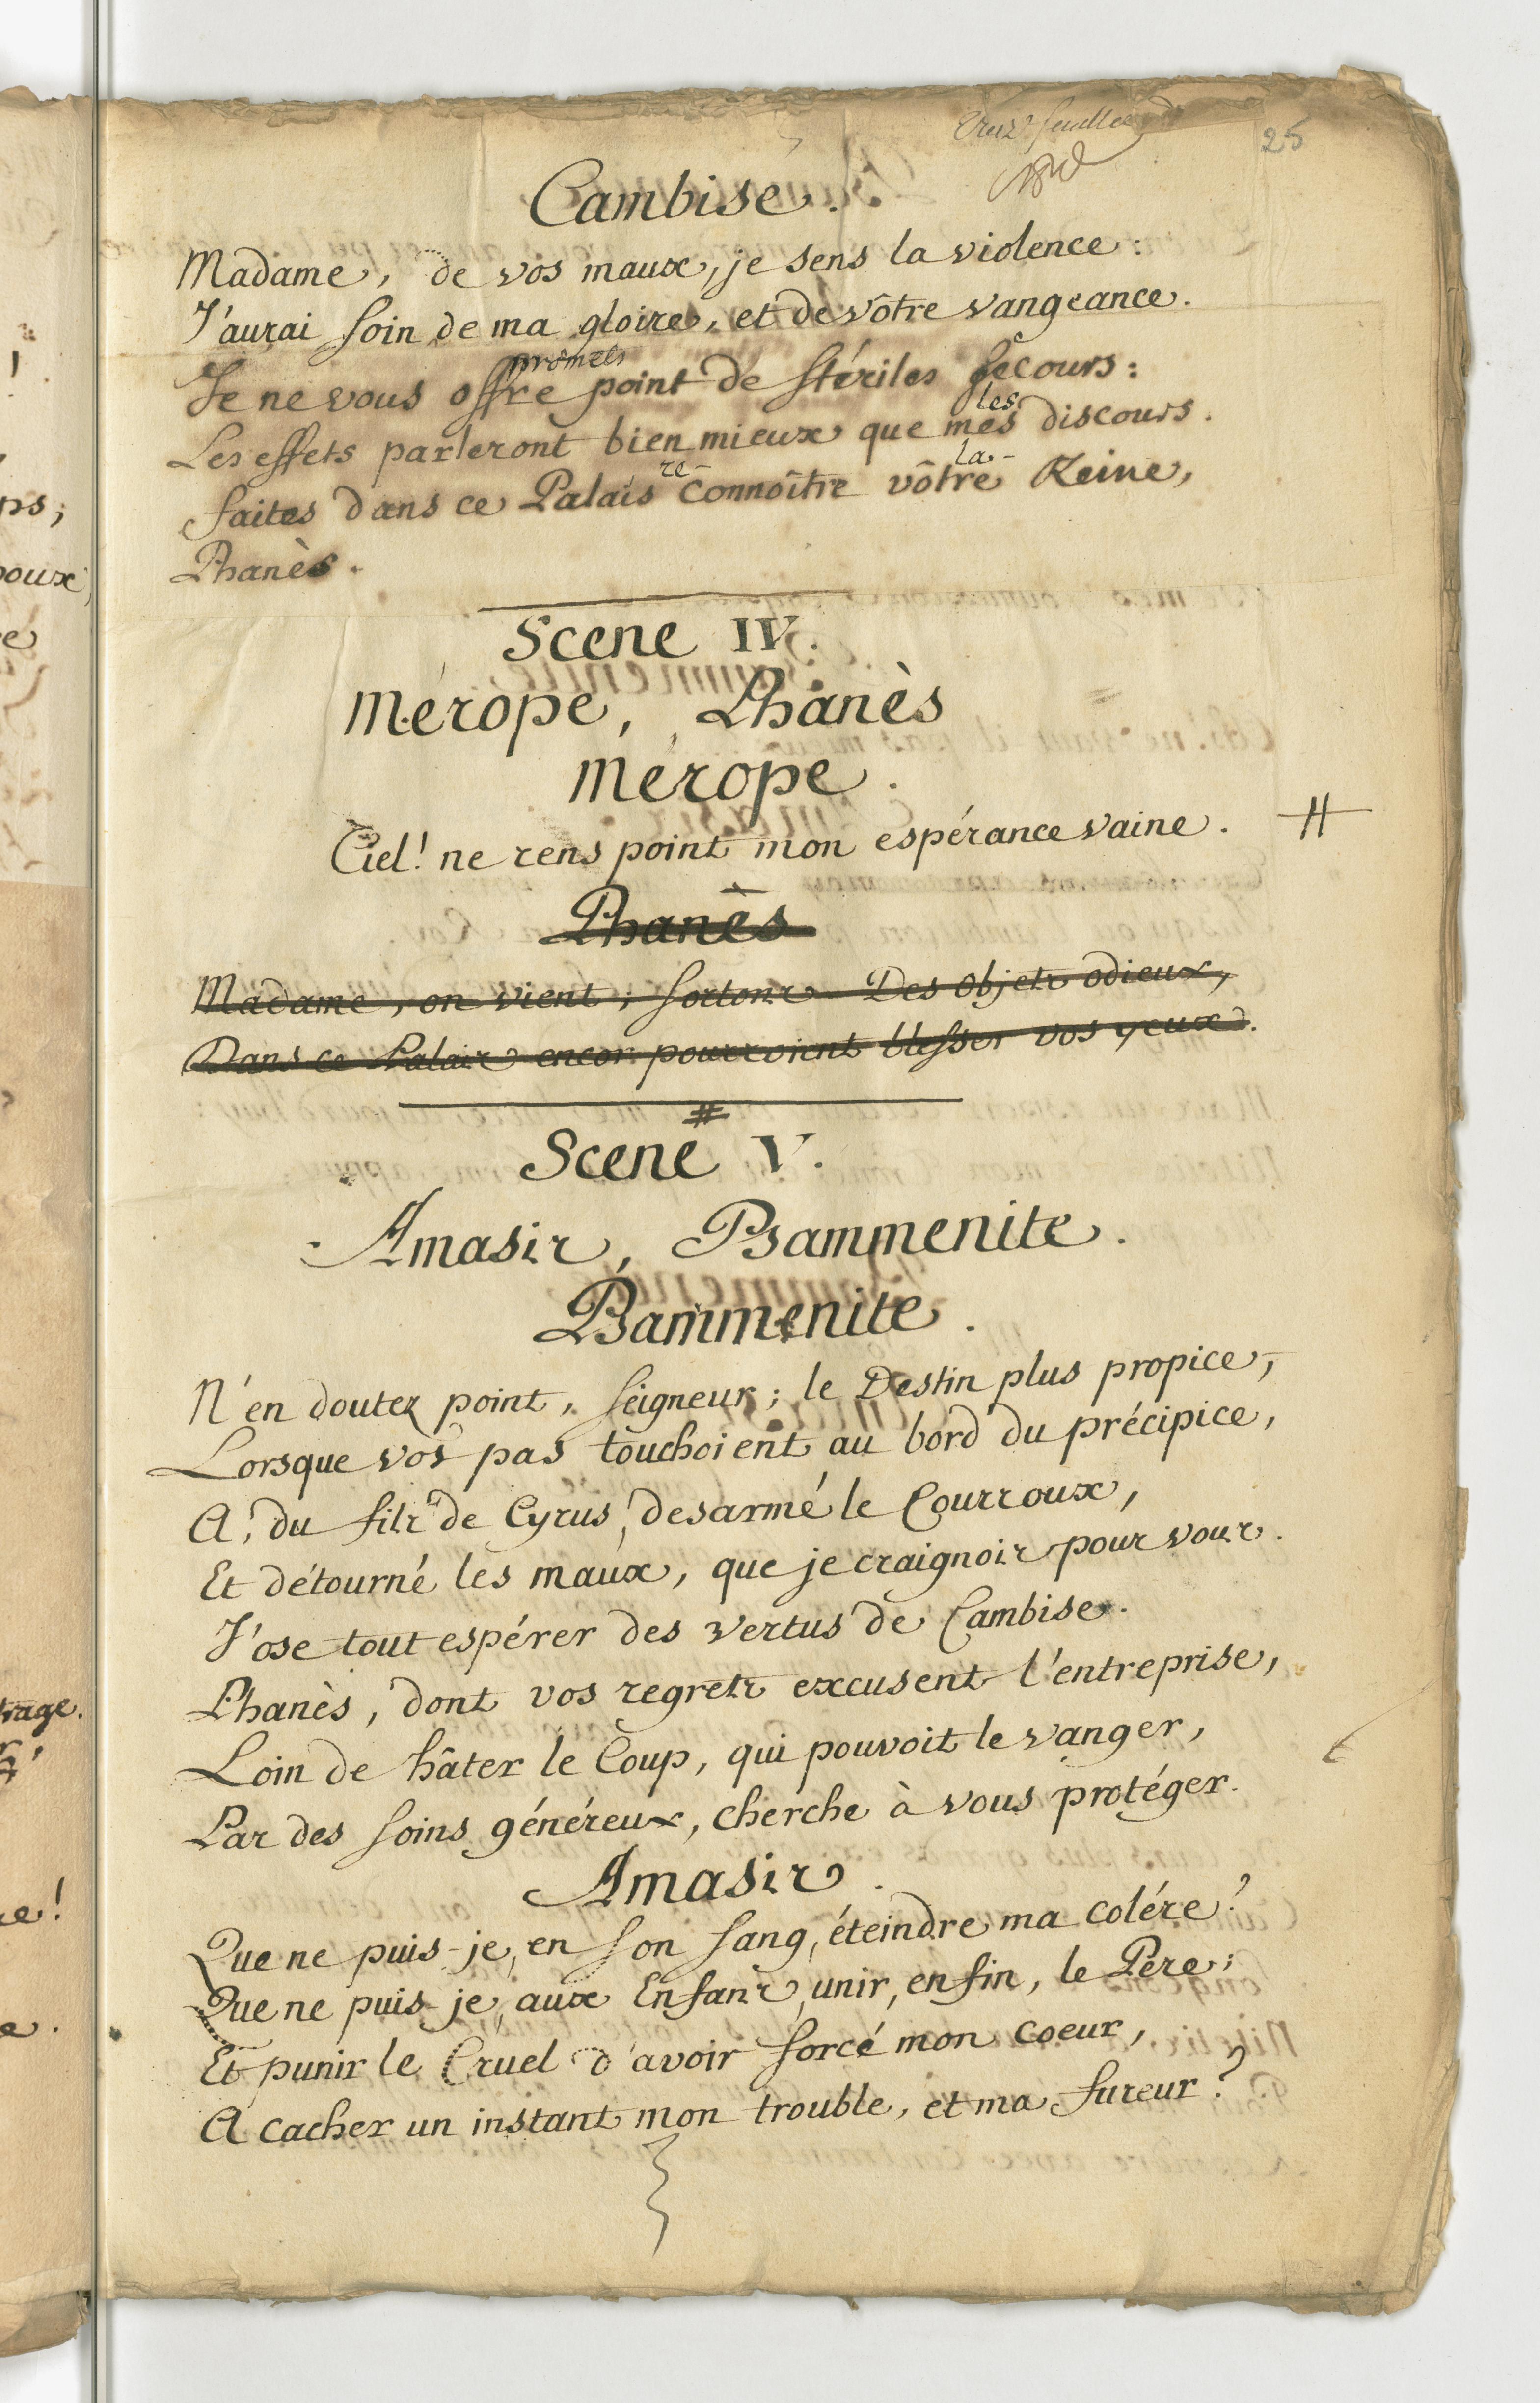 feuillee
25
Cambise.
Madame, de vos maux, je sens la violence:
J'aurai soin de ma gloire, et de vôtre vangeance.
promets
Je ne vous offre point de stériles secours:
les
Les effets parleront bien mieux que mes discours.
re la
faites dans ce Palais connoître vôtre Reine,
Phanès.
Scene IV.
Mérope, Phanès
Mérope.
Ciel! ne rens point mon espérance vaine. #
Phanès
Madame, on vient; sortons. Des objets odieux,
Dans ce Palais encor pourroient blesser vos yeux.
#
Scene V.
Amasis, Psammenite.
Psammenite.
N'en doutez point, seigneur; le Destin plus propice,
Lorsque vos pas touchoient au bord du précipice,
A, du fils de Cyrus, desarmé le Courroux,
Et détourné les maux, que je craignois pour vous.
J'ose tout espérer des vertus de Cambise.
Phanès, dont vos regrets excusent l'entreprise,
Loin de hâter le Coup, qui pouvoit le vanger,
Par des soins généreux, cherche à vous protéger.
Amasis.
Que ne puis-je, en son sang, éteindre ma colére?
Que ne puis-je, aux Enfans, unir, enfin, le Pere;
Et punir le Cruel d'avoir forcé mon coeur,
A cacher un instant mon trouble, et ma fureur?